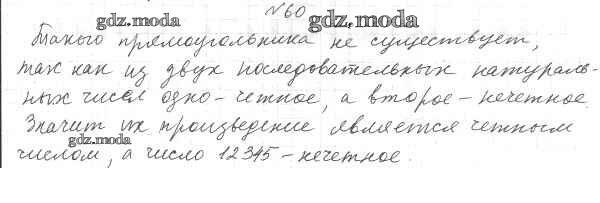 №60
gdz.moda gdz.moda
Такого прямоугольника не существует,
так как из двух последовательных натураль-
ных чисел одно - четное, а второе - нечетное.
Значит их произведение является четным
gdz.moda
числом, а число 12345 - нечетное.